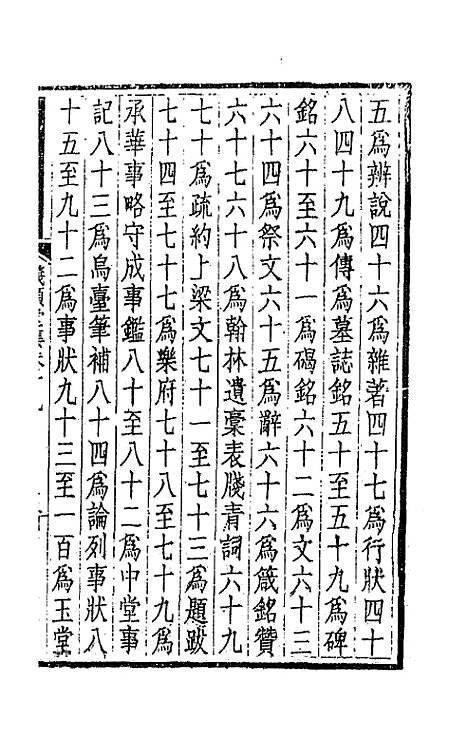 五爲辨說四十六爲雜著四十七爲行狀四十
八四十九爲傳爲墓誌銘五十至五十九爲碑
銘六十至六十一爲碣銘六十二爲文六十三
六十四爲祭文六十五爲辭六十六爲箴銘贊
六十七六十八爲翰林遺藁表牋青詞六十九
七十爲疏約上梁文七十一至七十三爲題跋
七十四至七十七爲樂府七十八至七十九爲
承華事略守成事鑑八十至八十二爲中堂事
記八十三爲烏臺筆補八十四爲論列事狀八
十五至九十二爲事狀九十三至一百爲玉堂